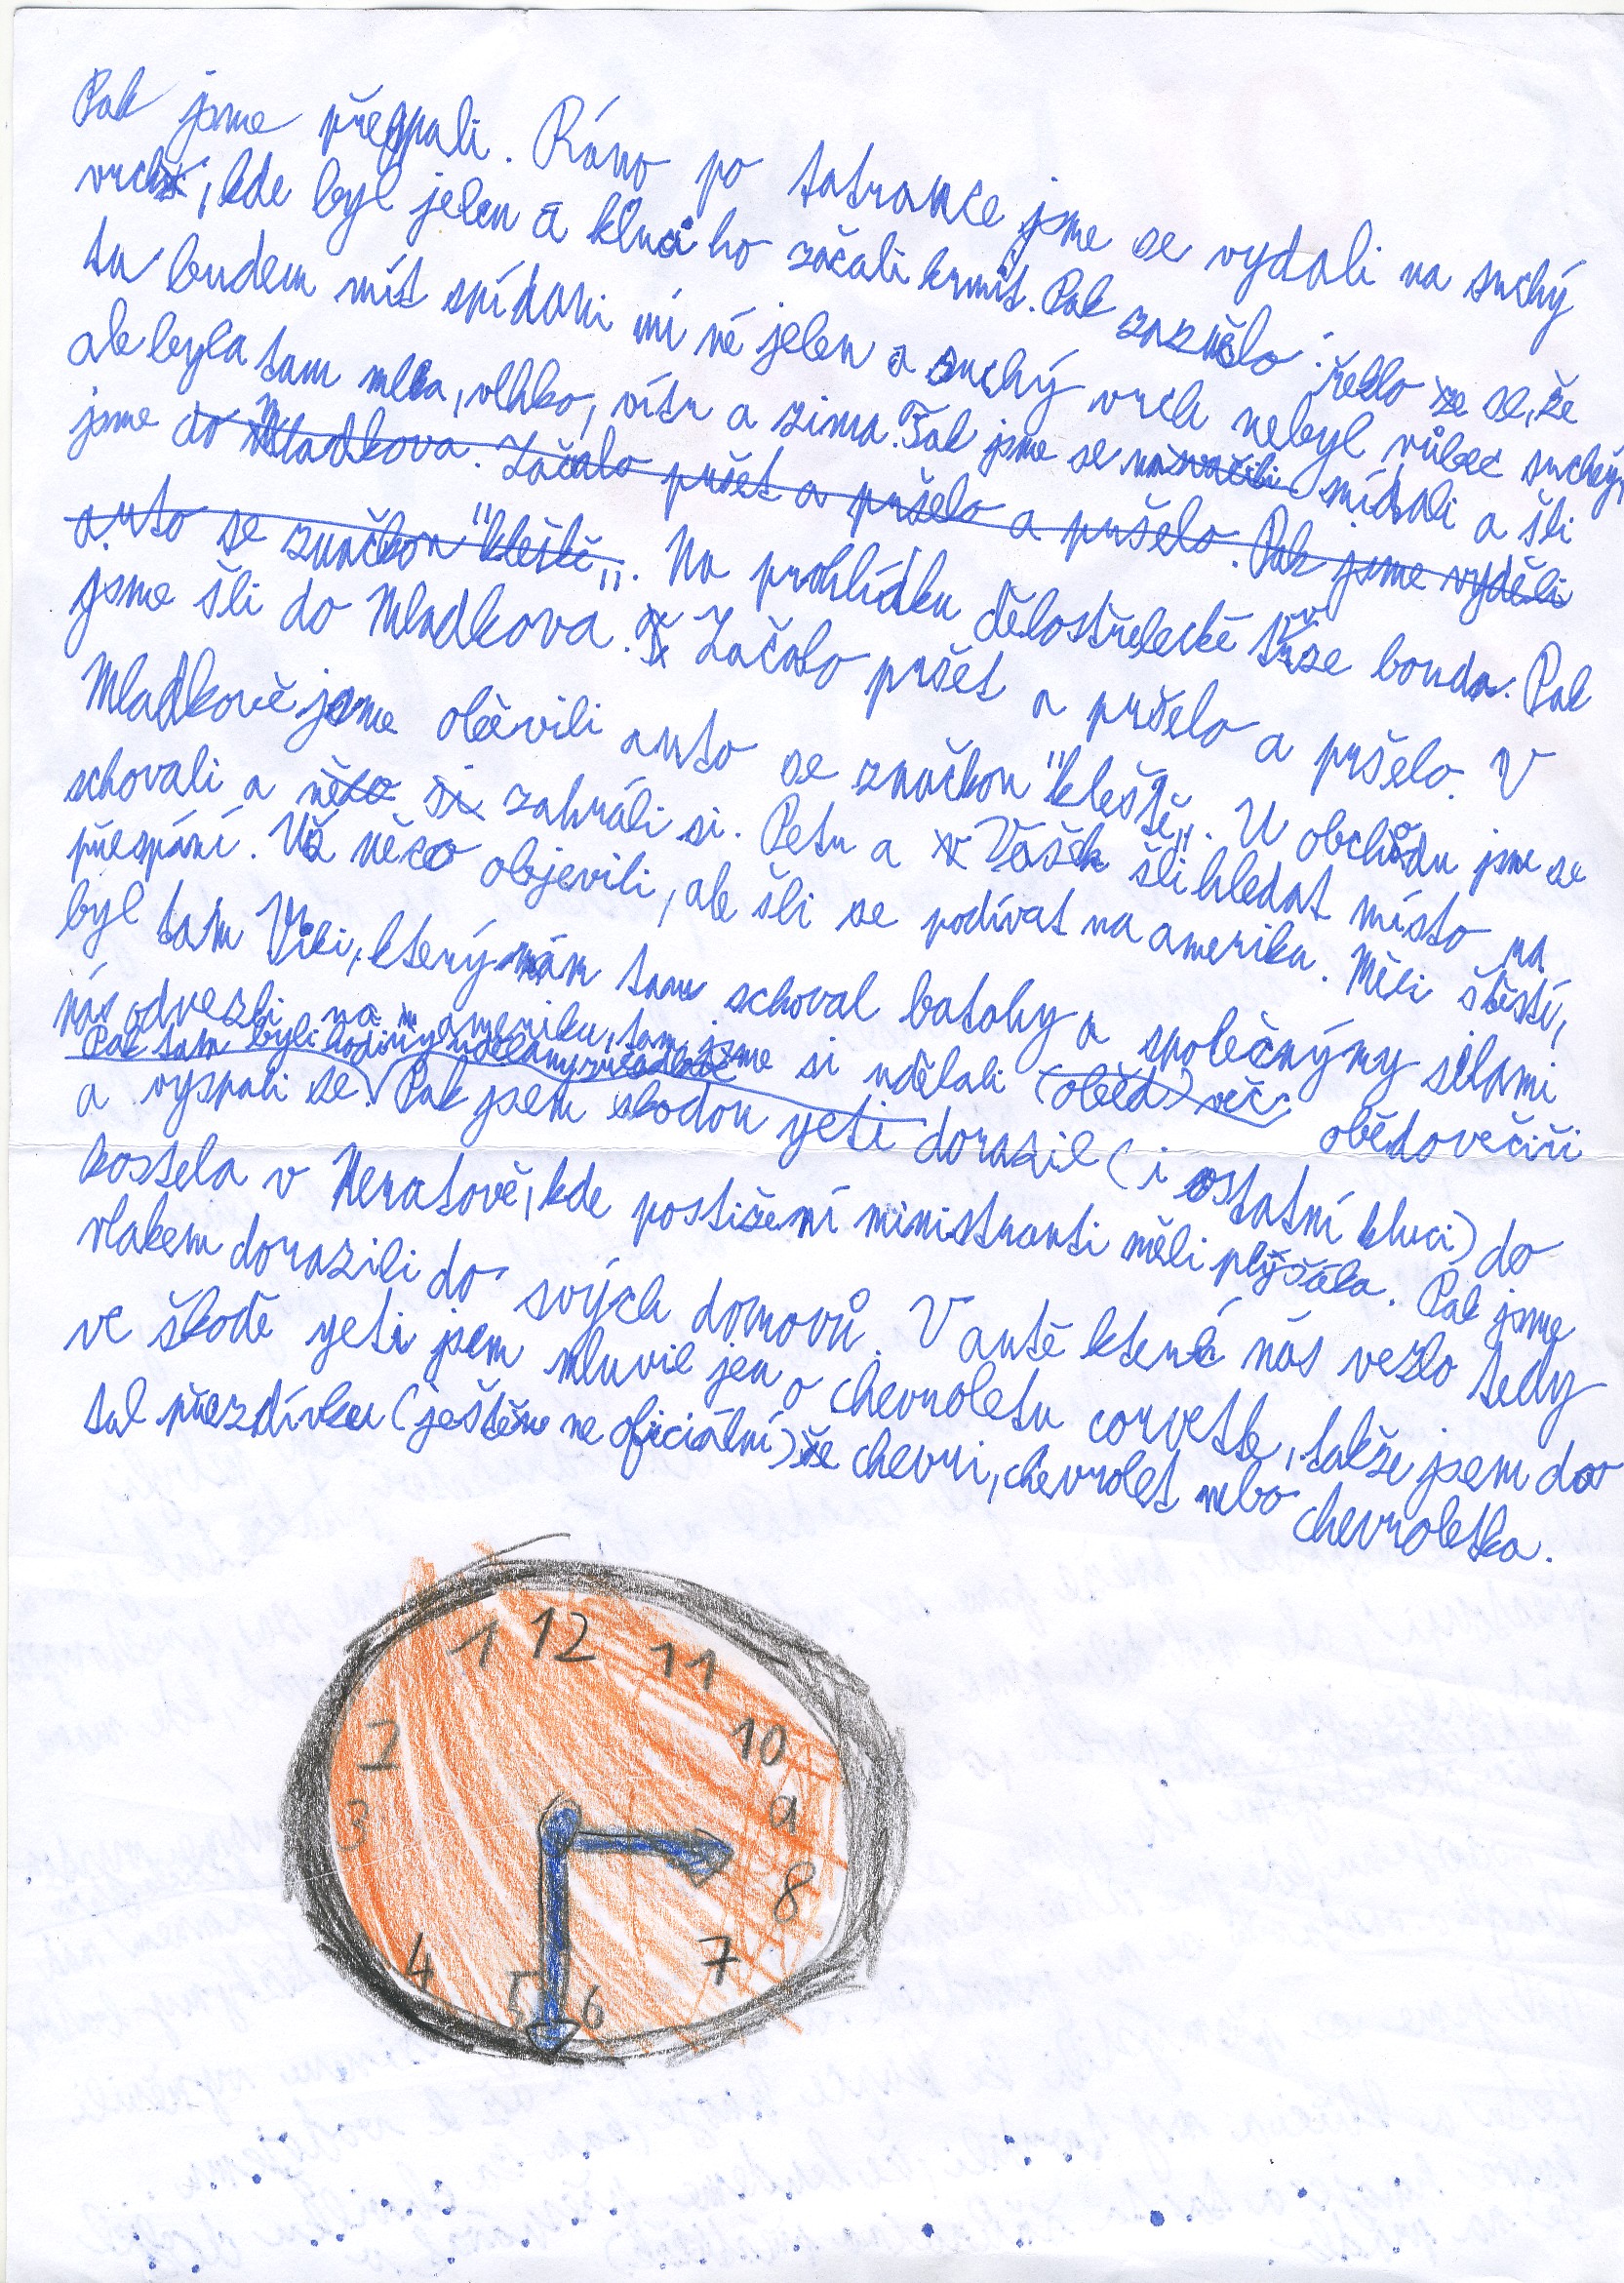 Pak jsme přespali. Ráno po tatrance jsme se vydali na suchý
vrch, kde byl jelen a kluci ho začali krmit. Pak řeklo se, že
tu budem mít snídani mi né jelen a suchý vrch nebyl vůbec suchý,
ale byla tam mlha, vlhko, vítr a zima. Tak jsme se snídali a šli
jsme do Mladkova. Začalo pršet a pršelo a pršelo. Pak jsme vyděli
auto se značkou "kleště„. Na prohlídku dělostřelecké tvrze bouda. Pak
jsme šli do Mladkova. Začalo pršet a pršelo a pršelo. V
Mladkově jsme oběvili auto se značkou "kleště„. U obchůdu jsme se
schovali a něco si zahráli si. Petr a Vašek šli hledat místo na
přespání. Už něco objevili, ale šli se podívat na ameriku. Měli štěstí,
byl tam Viki, který nám tam schoval batohy a společnýmy silami
nás odvezli na ameriku, tam jsme si udělali (oběd) več. obědovečiři
Pak tam byli hodiny udělany zrcadlově
a vyspali se. Pak jsem škodou yeti dorazil (i ostatní kluci) do
kostela v Neratově, kde postižení ministranti měli plyšáka. Pak jsme
vlakem dorazili do svých domovů. V autě které nás vezlo tedy
ve škodě yeti jsem mluvil jen o chevroletu corvette, takže jsem dos
tal přezdívku (ještě ne oficiální) že chevri, chevrolet nebo chevroletka.
1 12 11
2 10
3 9
8
4 5 6 7